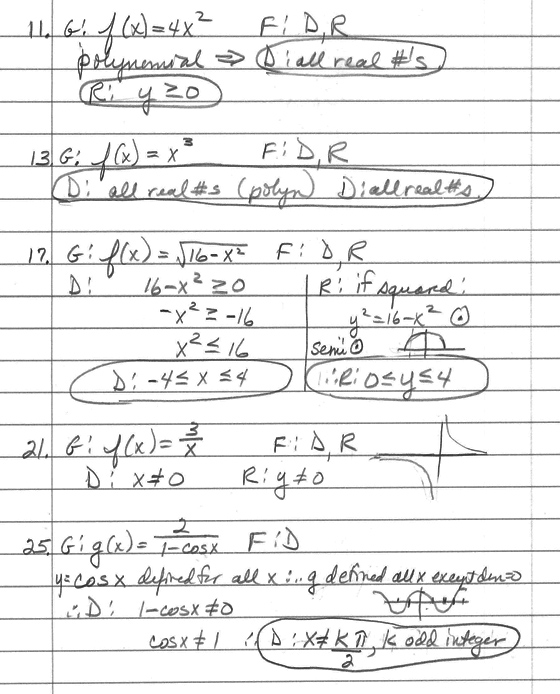 11. G: f(x)=4x² F: D, R
polynomial ⇒ D: all real #'s
R: y ≥ 0
13. G: f(x) = x³ F: D, R
D: all real #s (polyn) D: all real #s.
17. G: f(x) = √16-x² F: D, R
D: 16-x² ≥ 0
-x² ≥ -16
x² ≤ 16
D: -4 ≤ x ≤ 4
R: if squared:
y² = 16-x² ⊙
semi ⊙
∴ R: 0 ≤ y ≤ 4
21. G: f(x) = 3/x F: D, R
D: x ≠ 0 R: y ≠ 0
25. G: g(x) = 2/1-cosx F: D
y=cos x defined for all x ∴ g defined all x except den=0
∴ D: 1-cosx ≠ 0
cosx ≠ 1 ∴ D: x ≠ kπ/2, k odd integer